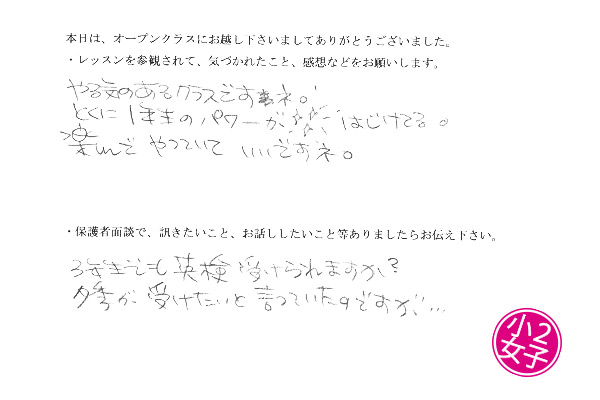 本日は、オープンクラスにお越し下さいましてありがとうございました。
・レッスンを参観されて、気づかれたこと、感想などをお願いします。
やる気のあるクラスですネ。
とくに1年生のパワーが はじけてる。
楽しんで やっていて いいですネ。
・保護者面談で、訊きたいこと、お話ししたいこと等ありましたらお伝え下さい。
3年生でも英検受けられますか?
が 受けたいと言っていたのですが…
小2
女子